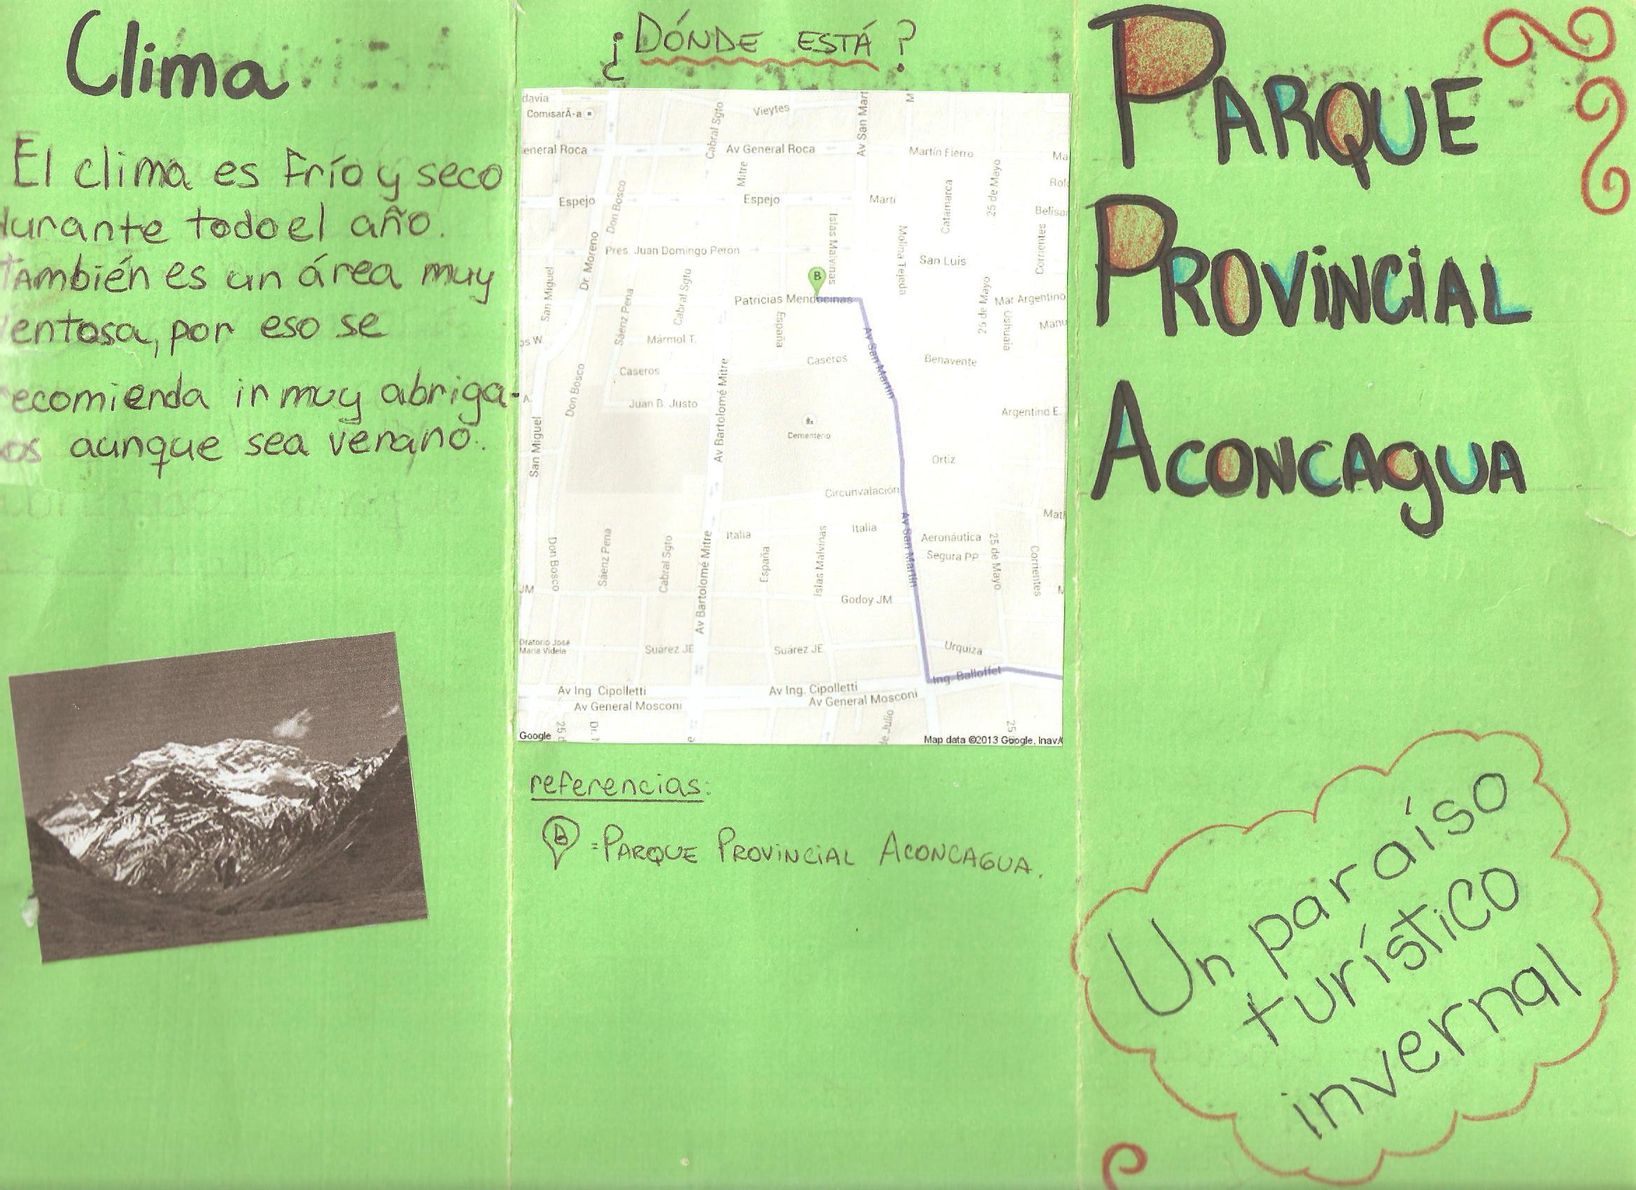 Clima
El clima es frío y seco
durante todo el año.
también es un área muy
ventosa, por eso se
recomienda ir muy abriga-
os aunque sea verano.
¿DÓNDE ESTÁ?
davia
Vieytes
ComisarÃ-a
Cabral Sgto
Av San Mart
M
eneral Roca
Av General Roca
Martín Fierro
Ma
Mitre
Don Bosco
25 de Mayo
Rol
Espejo
Espejo
Martí
Catamarca
Beliso
Islas Malvinas
Dr. Moreno
Pres. Juan Domingo Perón
Molina Tejeda
San Luis
Corrientes
San Miguel
Cabral Sgto
B
Sáenz Peña
Patricias Mendocinas
25 de Mayo
Mar Argentino
Ushuaia
Manu
os W.
Mármol T.
España
Av San Martín
Caseros
Benavente
Caseros
Av Bartolomé Mitre
Don Bosco
Juan B. Justo
A.
Argentino E.
San Miguel
Cementerio
Ortiz
Circunvalación
Av San Martín
Mat
Italia
Italia
Aeronáutica
Segura PP
Don Bosco
Sáenz Peña
Cabral Sgto
Av Bartolomé Mitre
España
Islas Malvinas
25 de Mayo
Corrientes
JM
Godoy JM
M
Oratorio José
María Videla
Suárez JE
Suárez JE
Urquiza
Ing. Balloffet
Av Ing. Cipolletti
Av Ing. Cipolletti
Av General Mosconi
Av General Mosconi
25 d
Dr. M
de Julio
25
Google
Map data ©2013 Google, Inav/
referencias:
B = PARQUE PROVINCIAL ACONCAGUA.
PARQUE
PROVINCIAL
ACONCAGUA
Un paraíso
turístico
invernal